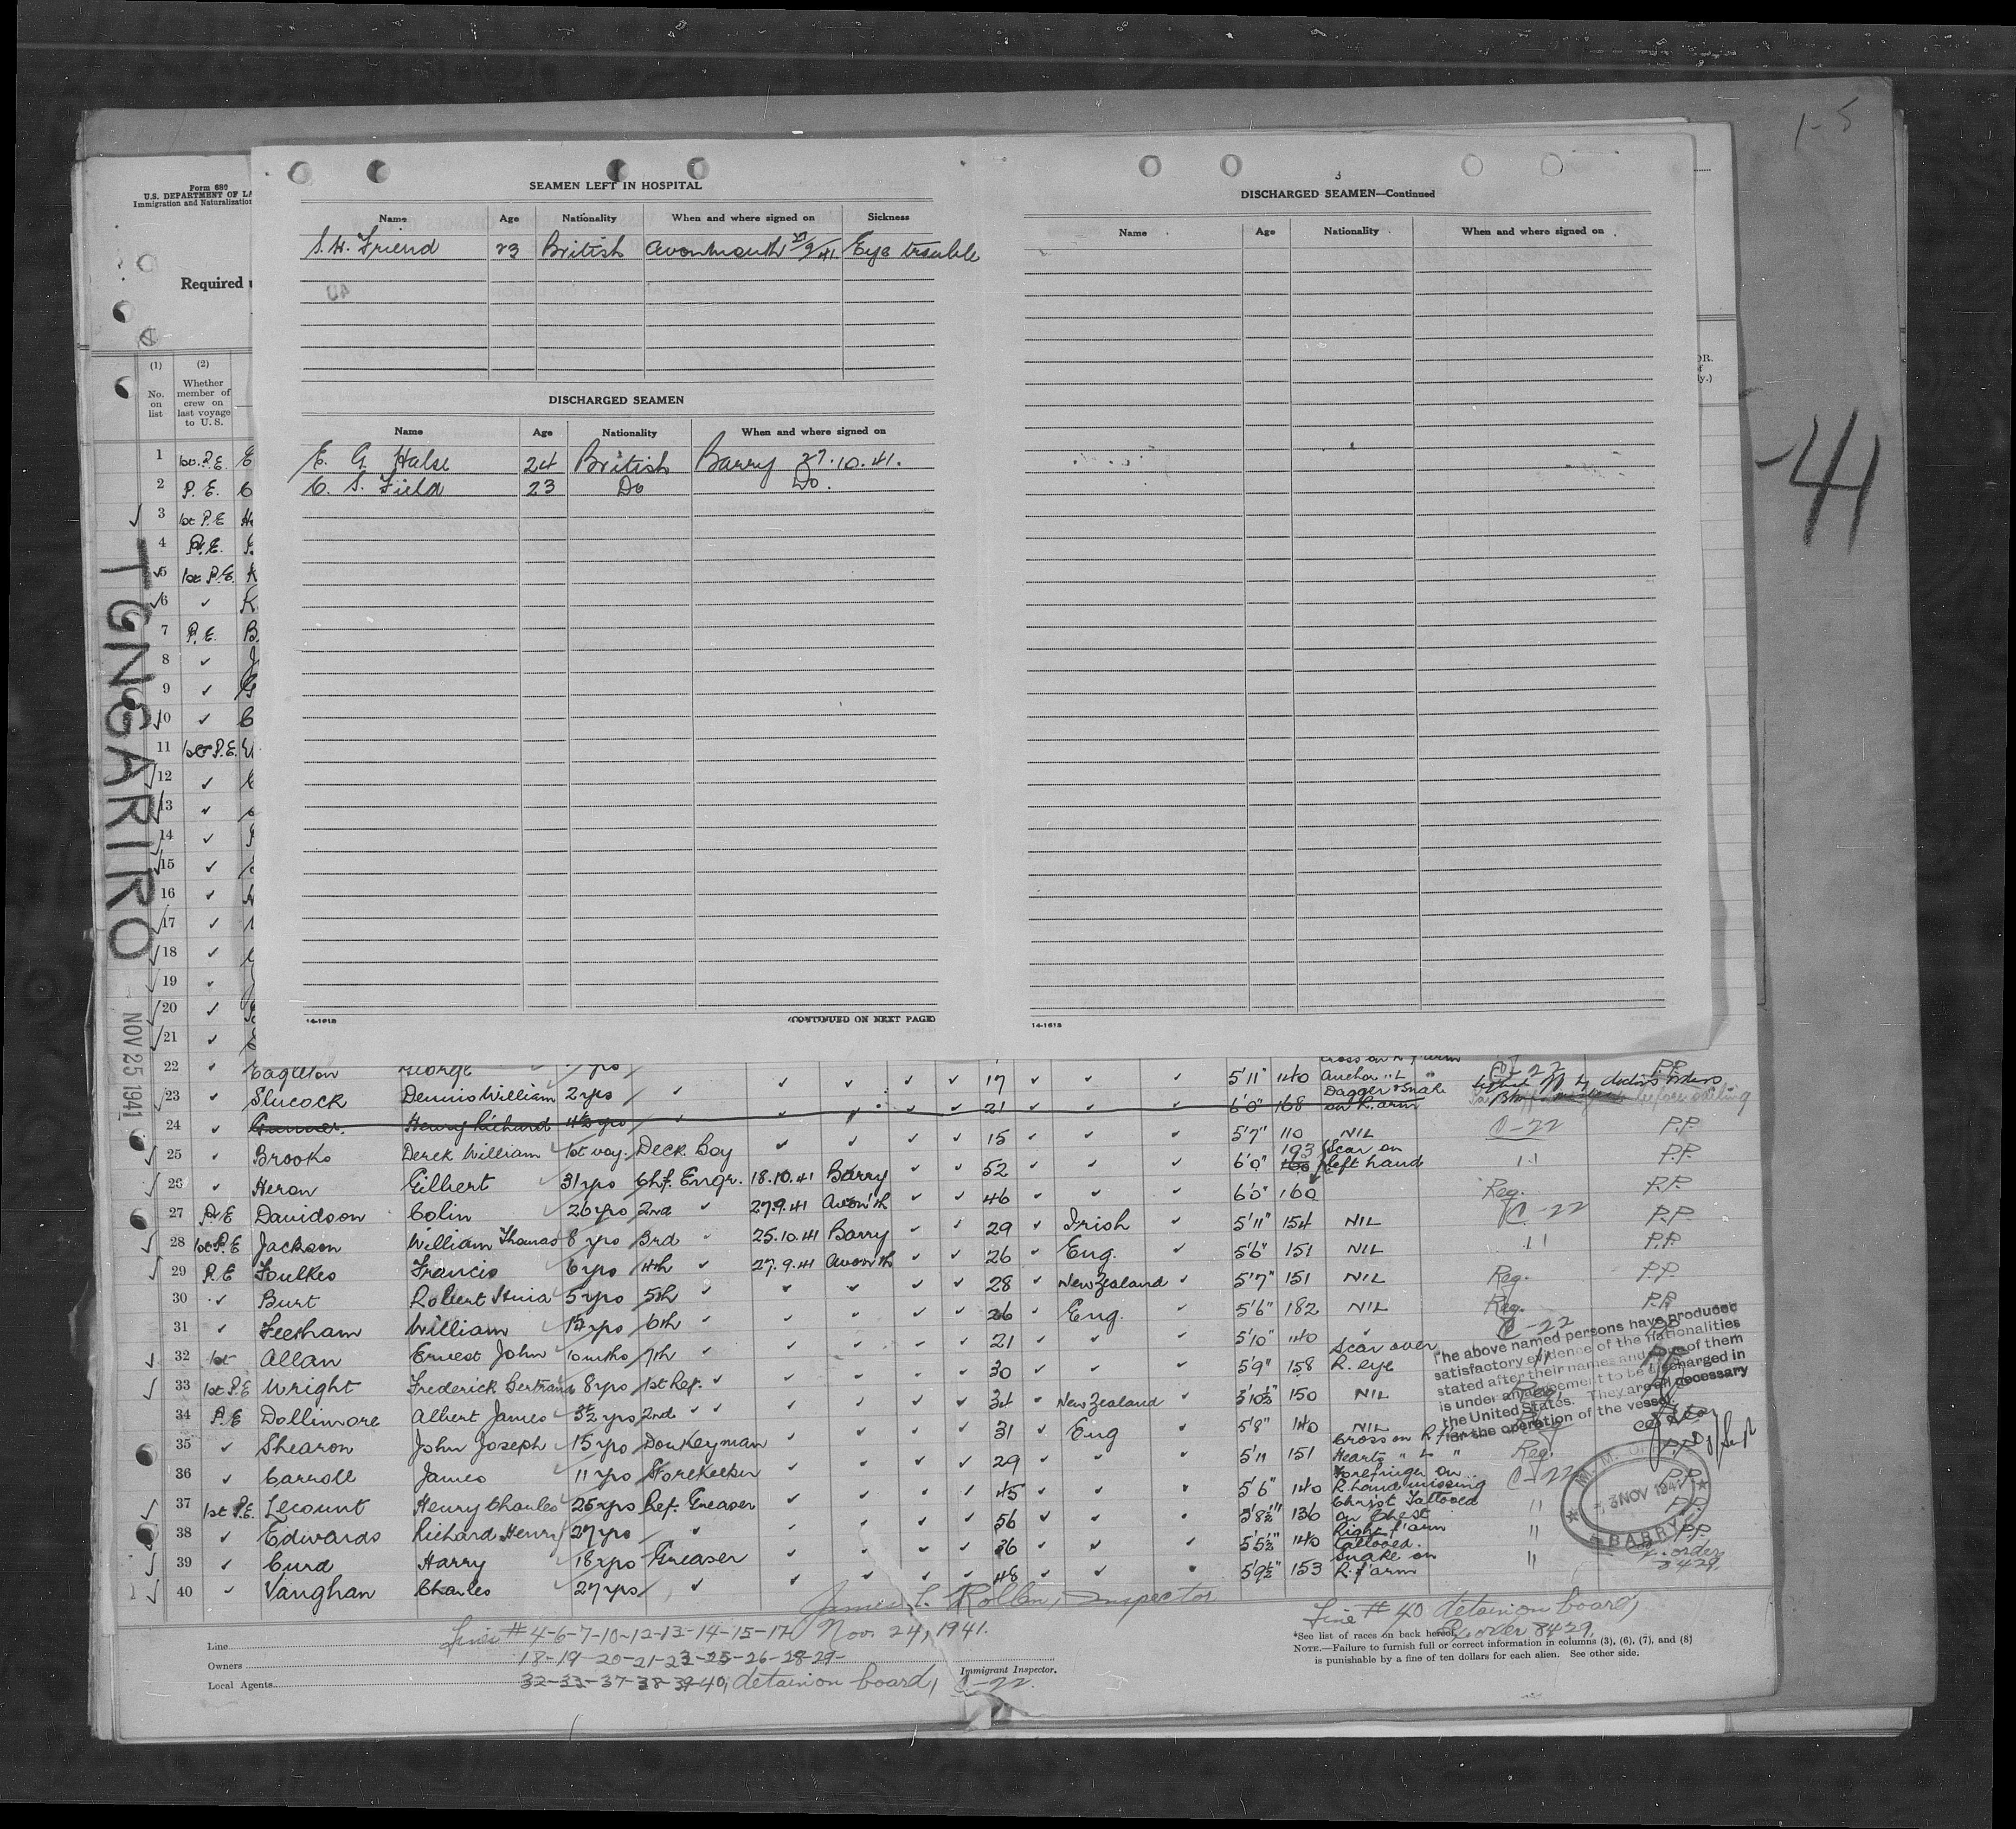 1-5
-41
Form 680
U.S. DEPARTMENT OF LA
Immigration and Naturalization
Required
SEAMEN LEFT IN HOSPITAL
Name Age Nationality When and where signed on Sickness
S.H. Friend 23 British Avonmouth 27/9/41 Eye trouble
DISCHARGED SEAMEN
Name Age Nationality When and where signed on
E. G. Halse 24 British Barry 27.10.41.
C. S. Field 23 Do Do.
14-1618
(CONTINUED ON NEXT PAGE)
3
DISCHARGED SEAMEN—Continued
Name Age Nationality When and where signed on
14-1618
(1) (2)
No. on list
Whether member of crew on last voyage to U.S.
TONGARIRO
NOV 25 1941
1 1st P.E. E
2 P.E. C
3 1st P.E H
4 P.E.
5 1st P.E. K
6 ✓ K
7 P.E. B
8 ✓ J
9 ✓ G
10 ✓ C
11 1st P.E.
12 ✓
13 ✓
14 ✓
15 ✓
16 ✓
17 ✓
18 ✓
19 ✓
20 ✓
21 ✓
22 ✓ Eagleton George yrs 17 ✓ 5'11" 140 Anchor " L " C-22 P.P.
23 ✓ Slucock Dennis William 2 yrs ✓ 21 ✓ 6'0" 168 Dagger & Snake on R. arm
24 ✓ Gunner. Henry Richard 4½ yrs ✓ 15 ✓ 5'7" 110 NIL C-22 P.P.
25 ✓ Brooks Derek William 1st voy. Deck Boy ✓ 52 ✓ 6'0" 193 Scar on left hand 11 P.P.
26 ✓ Heron Gilbert 31 yrs Chf. Engr. 18.10.41 Barry ✓ 46 ✓ 6'0" 160 Reg. P.P.
27 P.E Davidson Colin 26 yrs 2nd ✓ 27.9.41 Avon'th ✓ 29 ✓ Irish ✓ 5'11" 154 NIL C-22 P.P.
28 1st P.E Jackson William Thomas 8 yrs 3rd 25.10.41 Barry ✓ 26 ✓ Eng. ✓ 5'6" 151 NIL 11 P.P.
29 P.E Foulkes Francis 6 yrs 4th ✓ 27.9.41 Avon'th ✓ 28 ✓ New Zealand ✓ 5'7" 151 NIL Reg. P.P.
30 ✓ Burt Robert 5 yrs 5th ✓ 26 ✓ Eng. ✓ 5'6" 182 NIL Reg. P.P.
31 ✓ Feesham William 1½ yrs 6th ✓ 21 ✓ 5'10" 140 C-22
32 1st Allan Ernest John 10 mths 7th ✓ 30 ✓ 5'9" 158 Scar over R. eye
33 1st P.E Wright Frederick Bertrand 8 yrs 1st Ref. ✓ 34 ✓ New Zealand ✓ 5'10½" 150 NIL
34 P.E Dollimore Albert James 3½ yrs 2nd ✓ ✓ 31 ✓ Eng ✓ 5'8" 140 NIL
35 ✓ Shearon John Joseph 15 yrs Donkeyman ✓ 29 ✓ 5'11 151 Cross on R. f'arm Hearts " L " Reg.
36 ✓ Carroll James 11 yrs Storekeeper ✓ 45 ✓ 5'6" 140 Forefinger on R. hand missing C-22 P.P.
37 1st P.E. Lecount Henry Charles 25 yrs Ref. Greaser ✓ 56 ✓ 5'8½" 136 Christ Tattooed on Chest " P.P.
38 ✓ Edwards Richard Henry 27 yrs ✓ 36 ✓ 5'5½" 140 Right f'arm tattooed. " P.P.
39 ✓ Curd Harry 18 yrs Greaser ✓ 48 ✓ 5'9½" 153 Snake on R. f'arm "
40 ✓ Vaughan Charles 27 yrs ✓
The above named persons have produced
satisfactory evidence of the nationalities
stated after their names and none of them
is under an agreement to be discharged in
the United States. They are all necessary
for the operation of the vessel
3 NOV 1941
BARRY
James L. Rollen, Inspector
Line # 4-6-7-10-12-13-14-15-17 Nov. 24, 1941.
18-19-20-21-23-25-26-28-29-
32-33-37-38-39-40, detain on board, C-22.
Line
Owners
Local Agents
Immigrant Inspector.
Line # 40 detain on board,
8429.
*See list of races on back hereof.
NOTE.—Failure to furnish full or correct information in columns (3), (6), (7), and (8)
is punishable by a fine of ten dollars for each alien. See other side.